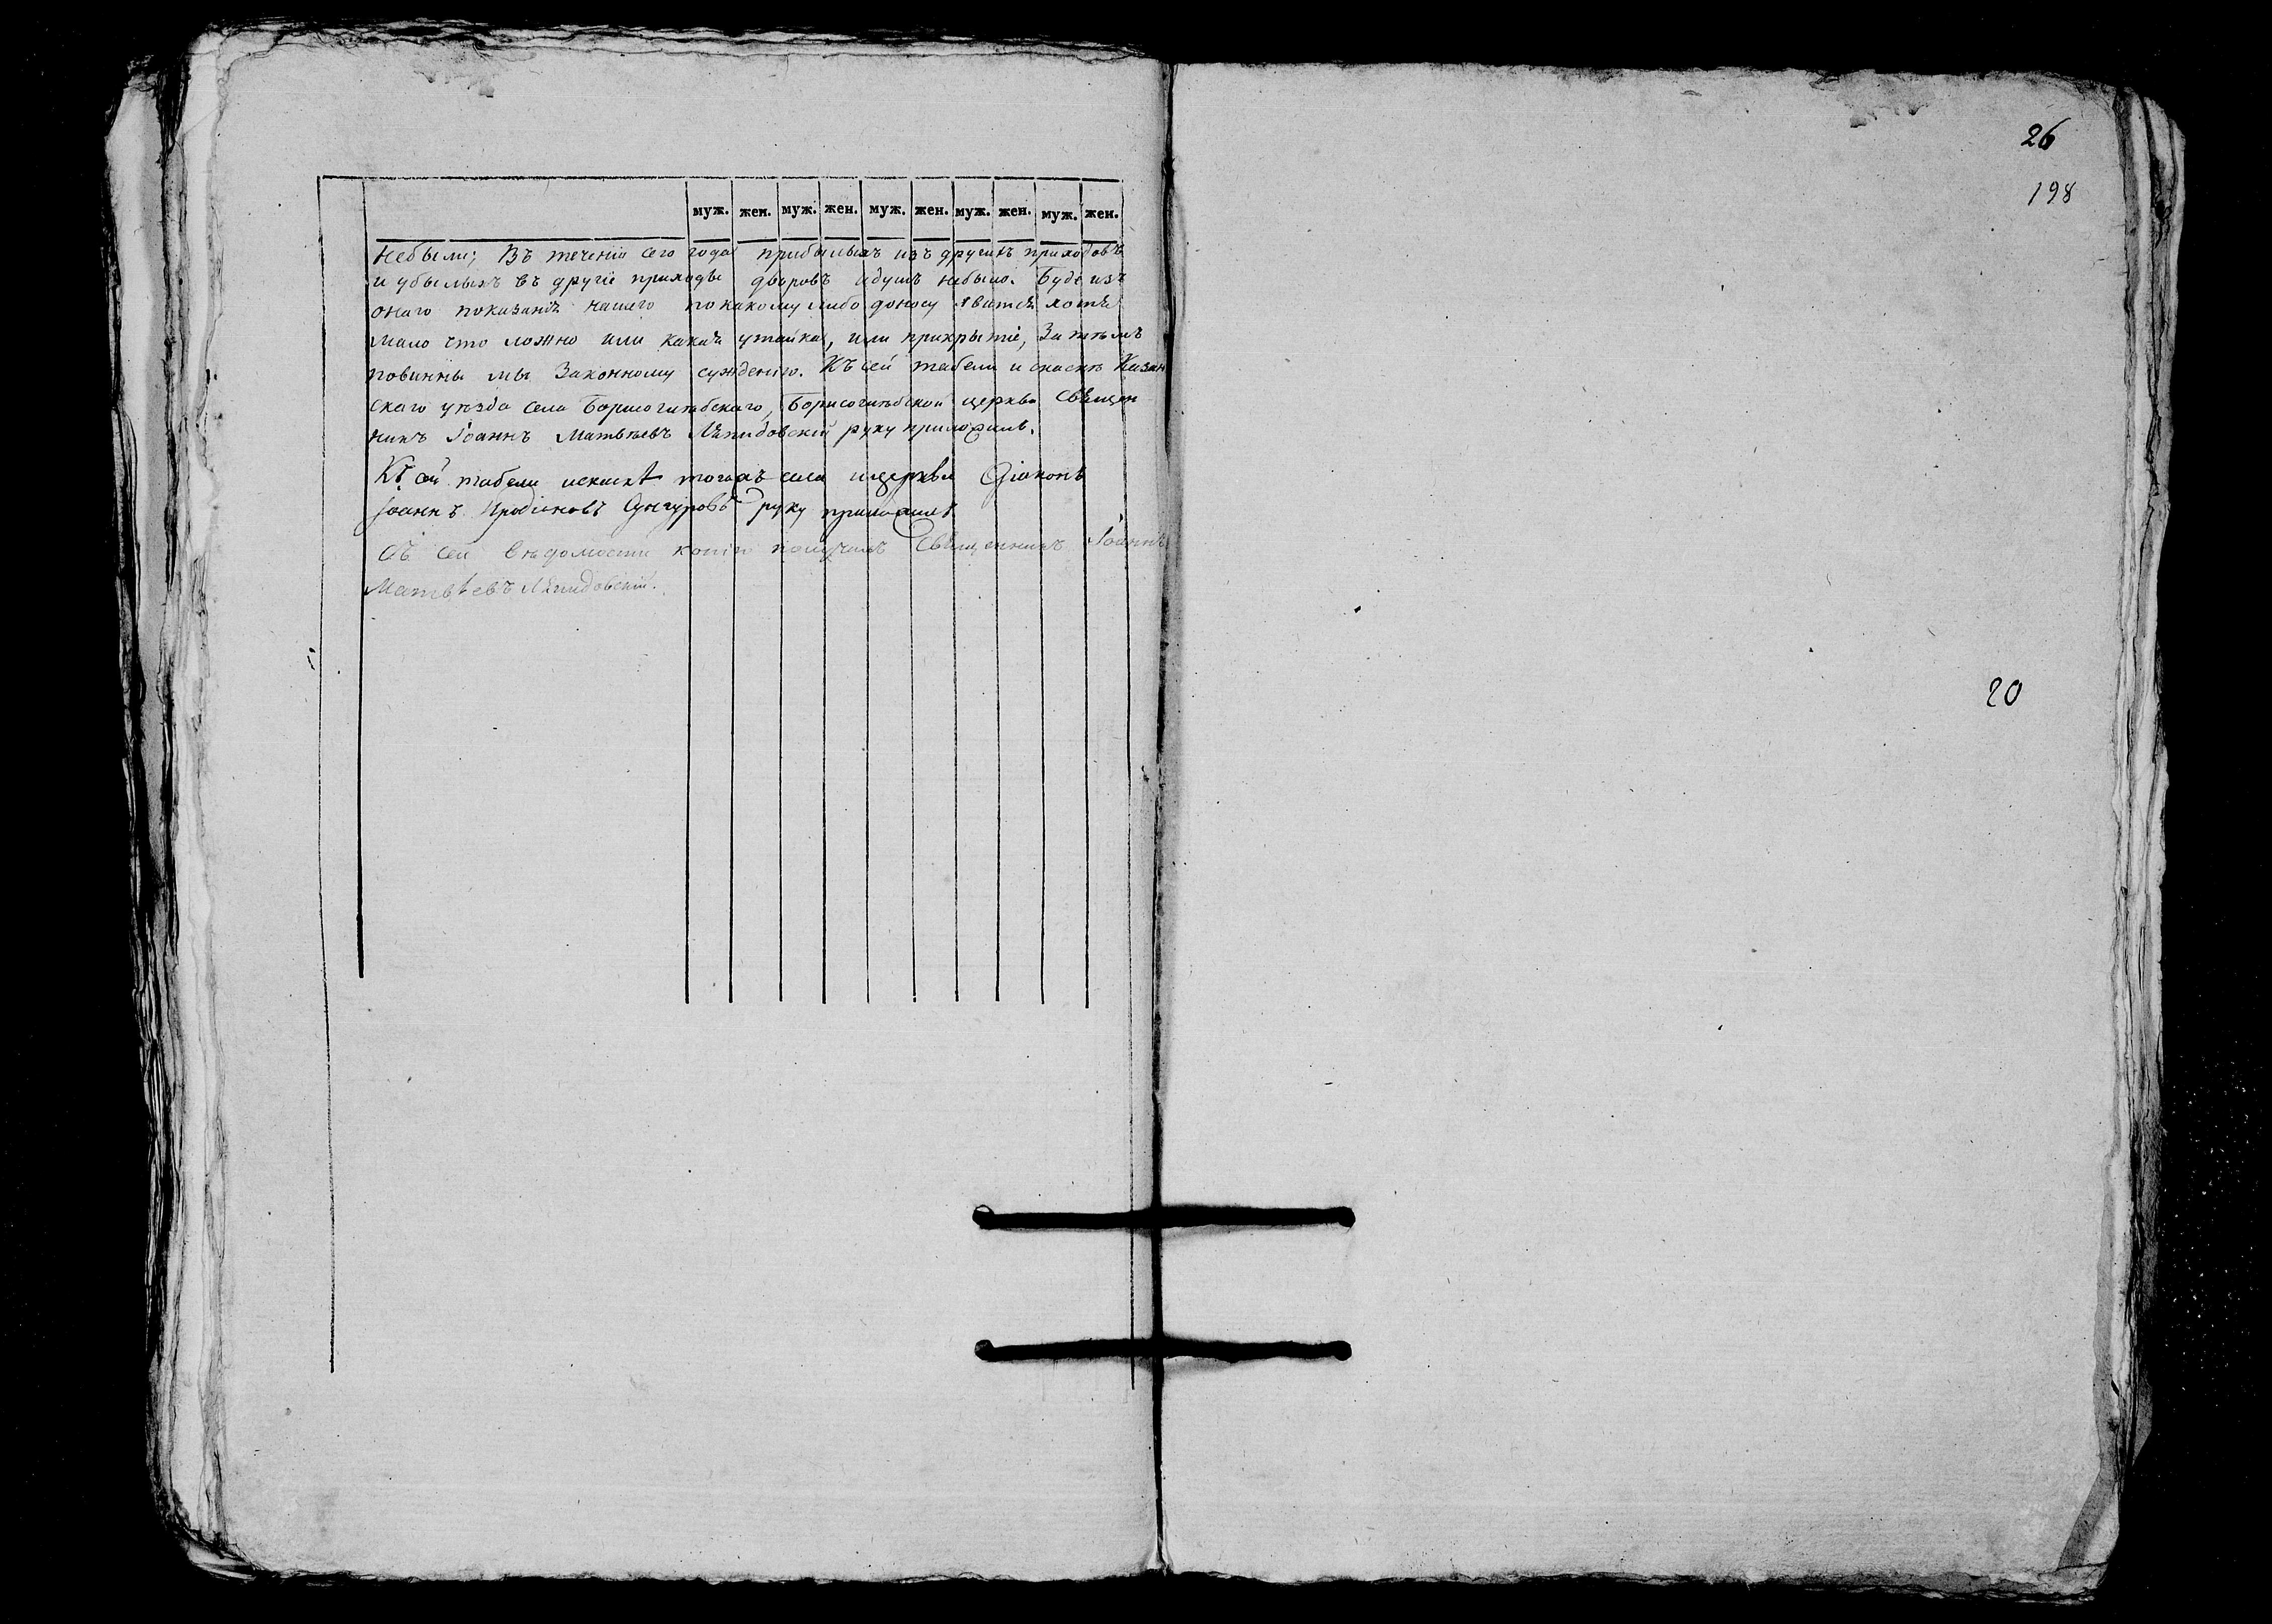 муж. жен. муж. жен. муж. жен. муж. жен. муж. жен.
небыли; Въ теченіи сего года прибылыхъ изъ другихъ приходовъ
и убылыхъ въ другіе приходы дворовъ идушъ небыло. Буде изъ
онаго показанія нашего по какому либо доносу явится хотя
мало что ложно или какая утайка, или прикрытіе, За тѣмъ
повинны мы Законному сужденію. Къ сей табели и скаскѣ Казан
скаго уезда села Борисоглебскаго, Борисоглебской церкви Священ
никъ Іоаннъ Матвѣевъ Ляпидовскій руку приложилъ.
Къ сей табели искаскѣ тогожъ села ицеркви Діаконъ
Іоаннъ Иродіоновъ Сунгуровъ руку приложилъ
Съ сей вѣдомости копію получилъ Священникъ Іоаннъ
Матвѣевъ Ляпидовскій.
26
198
20